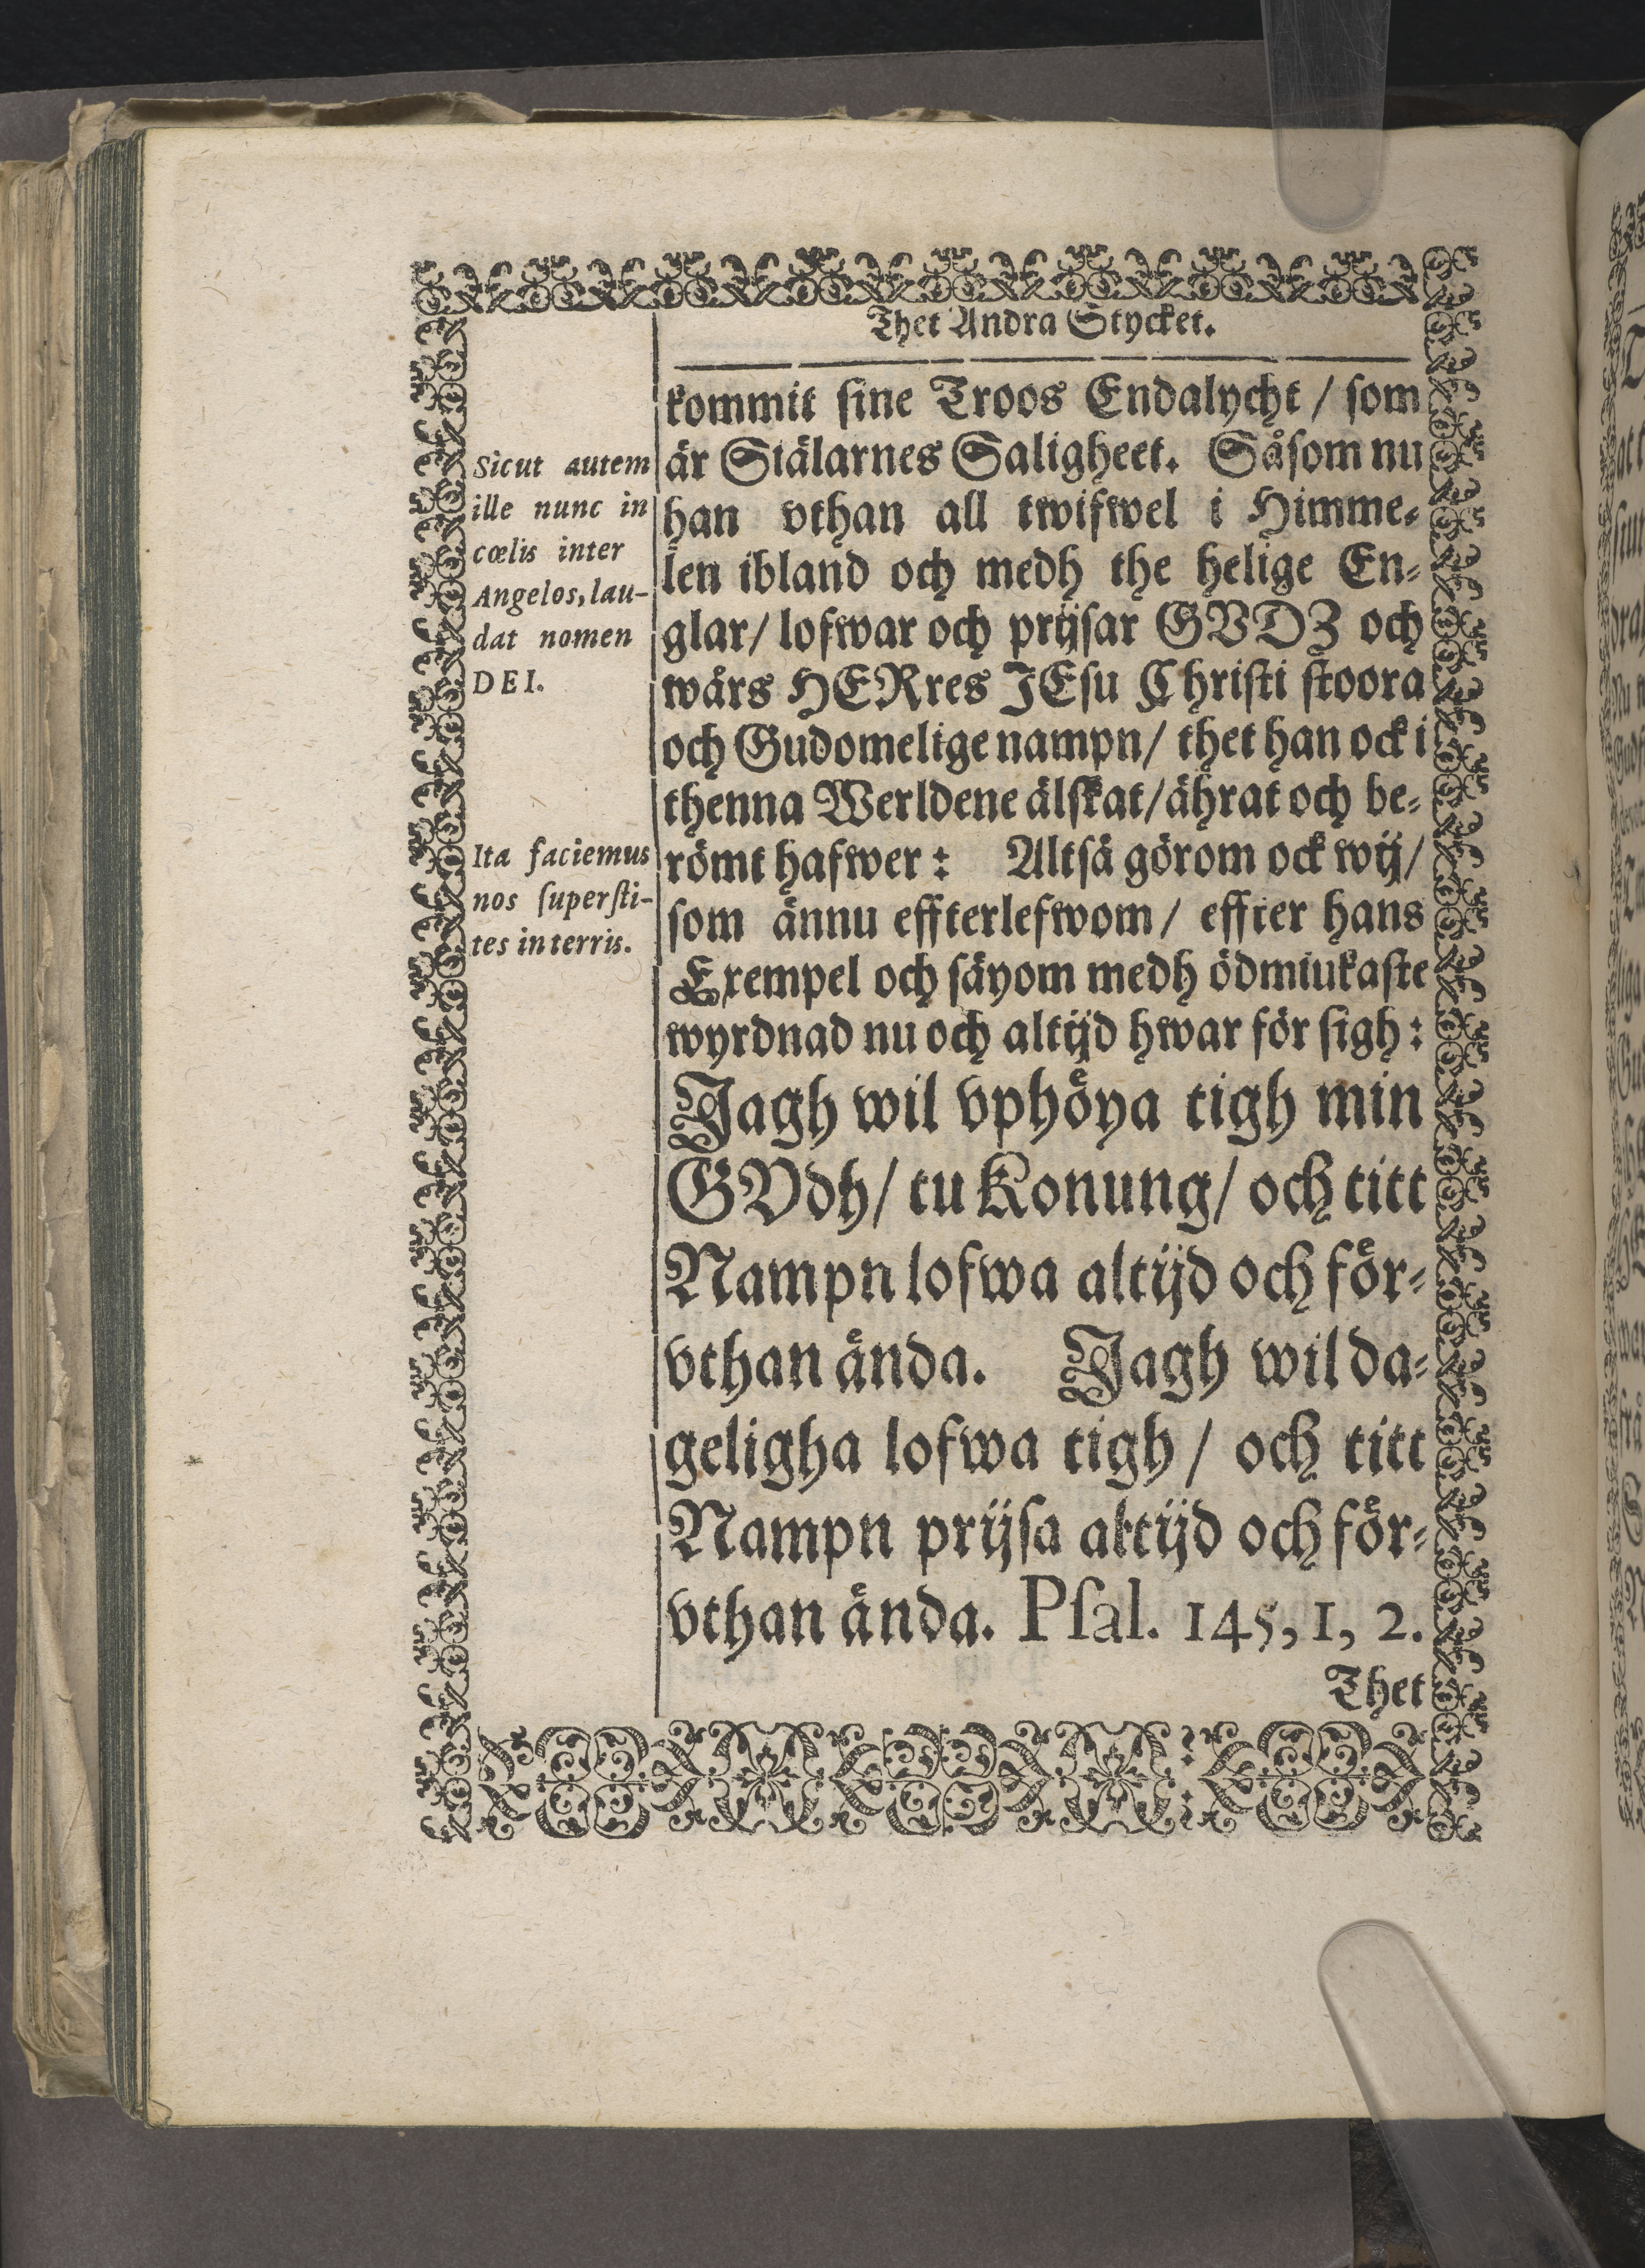 Thet Andra Stycket.
kommit sine Troos Endalycht / som
är Siälarnes Saligheet. Såsom nu
han vthan all twifwel i Himme-
len ibland och medh the helige En-
glar / lofwar och prijsar GVDZ och
wårs HERres JEsu Christi stoora
och Gudomelige nampn / thet han ock i
thenna Werldene älskat / ährat och be-
römt hafwer: Altså görom ock wij /
som ännu effterlefwom / effter hans
Exempel och säyom medh ödmiukaste
wyrdnad nu och altijd hwar för sigh:
Jagh wil vphöya tigh min
GVdh / tu Konung / och titt
Nampn lofwa altijd och för-
vthan ända. Jagh wil da-
geligha lofwa tigh / och titt
Nampn prijsa altijd och för-
vthan ända. Psal. 145, 1, 2.
Thet
Sicut autem
ille nunc in
cœlis inter
Angelos, lau-
dat nomen
DEI.
Ita faciemus
nos supersti-
tes in terris.